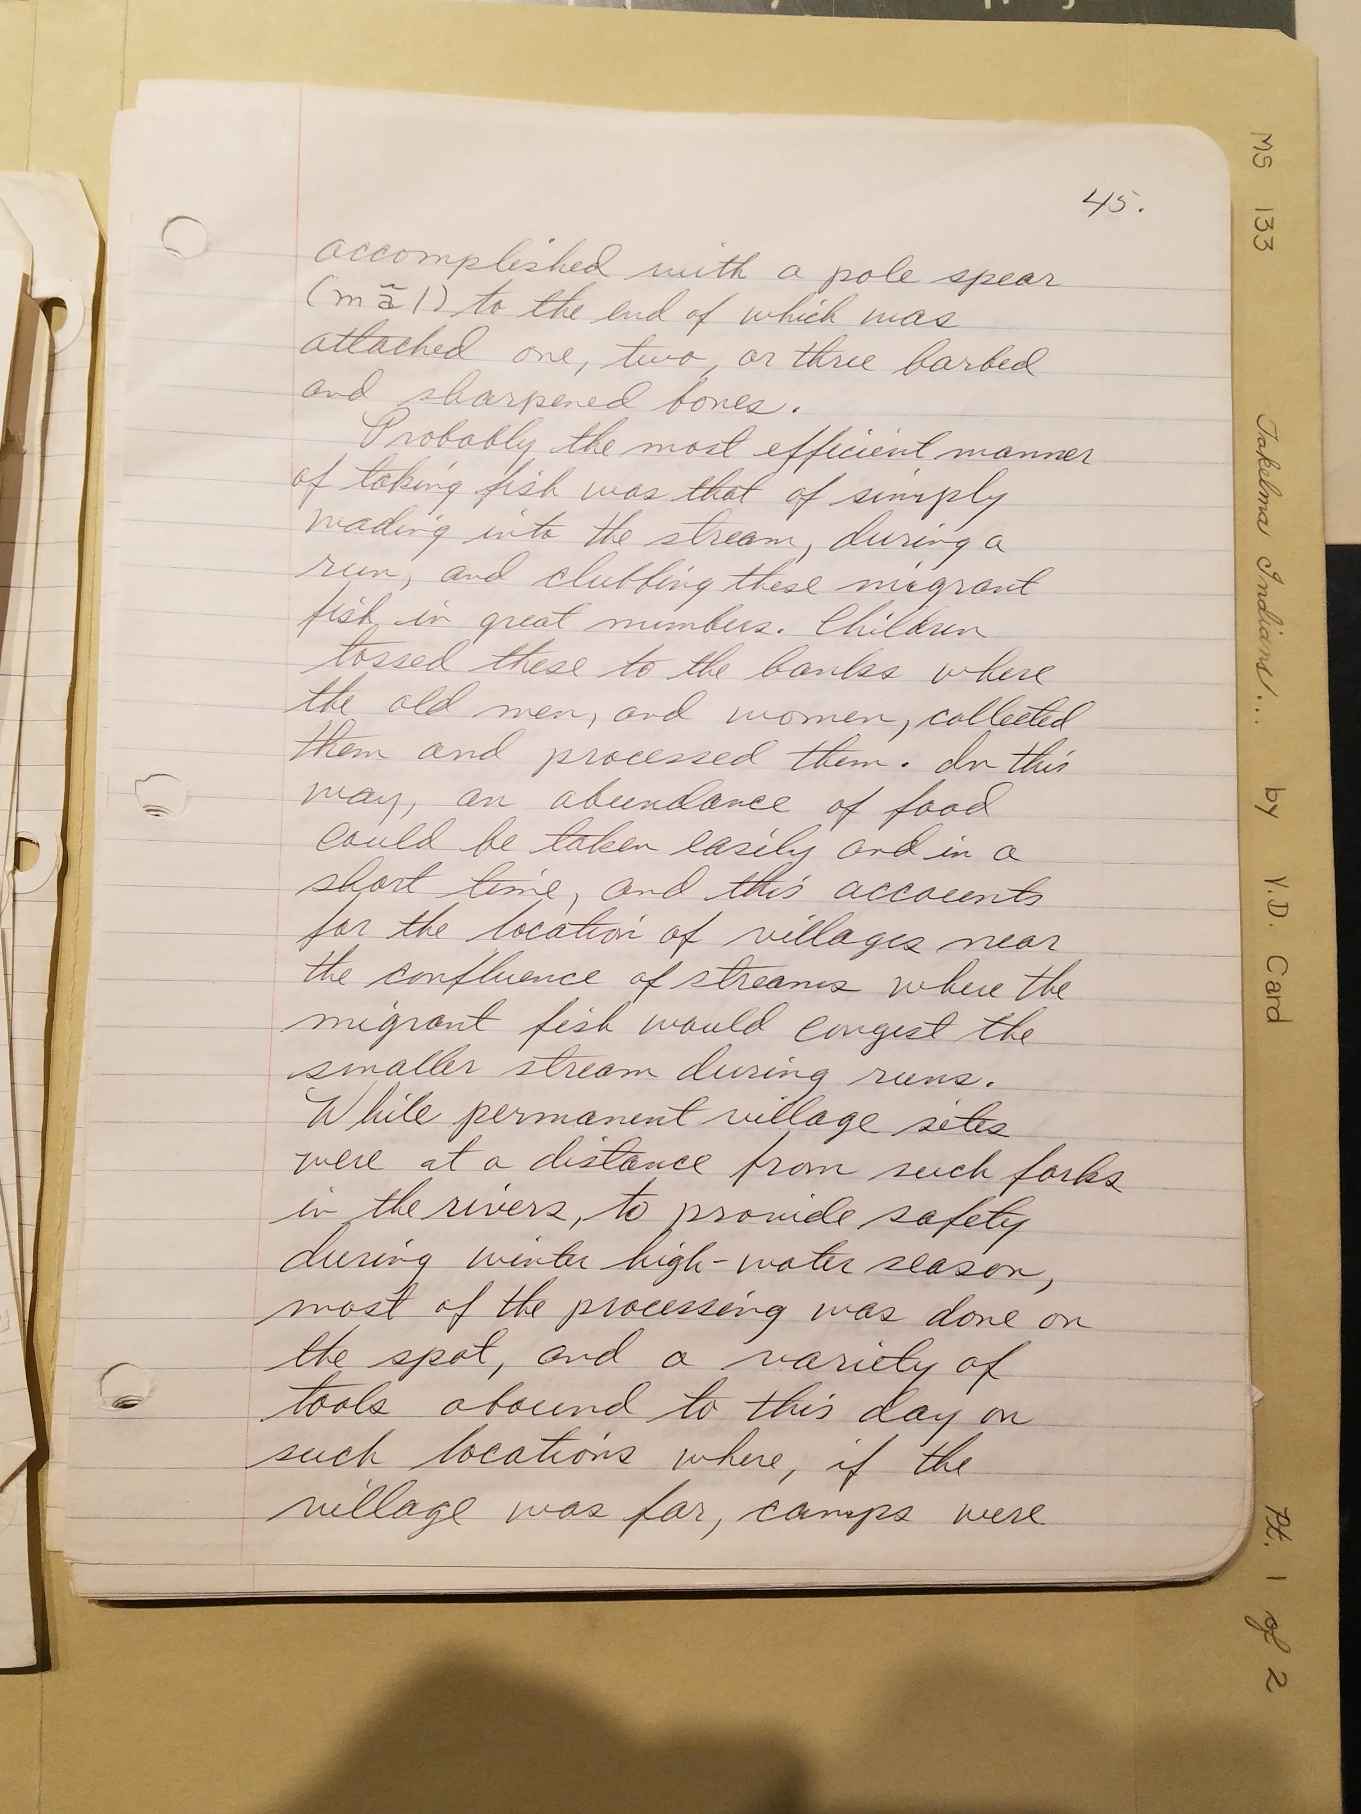 45.
accomplished with a pole spear
(mã̱l) to the end of which was
attached one, two, or three barbed
and sharpened bones.
Probably the most efficient manner
of taking fish was that of simply
wading into the stream, during a
run, and clubbing these migrant
fish in great numbers. Children
tossed these to the banks where
the old men, and women, collected
them and processed them. In this
way, an abundance of food
could be taken easily and in a
short time, and this accounts
for the location of villages near
the confluence of streams where the
migrant fish would congest the
smaller stream during runs.
While permanent village sites
were at a distance from such forks
in the rivers, to provide safety
during winter high-water season,
most of the processing was done on
the spot, and a variety of
tools abound to this day on
such locations where, if the
village was far, camps were
MS 133 Takelma Indians... by Y.D. Card Pt. 1 of 2